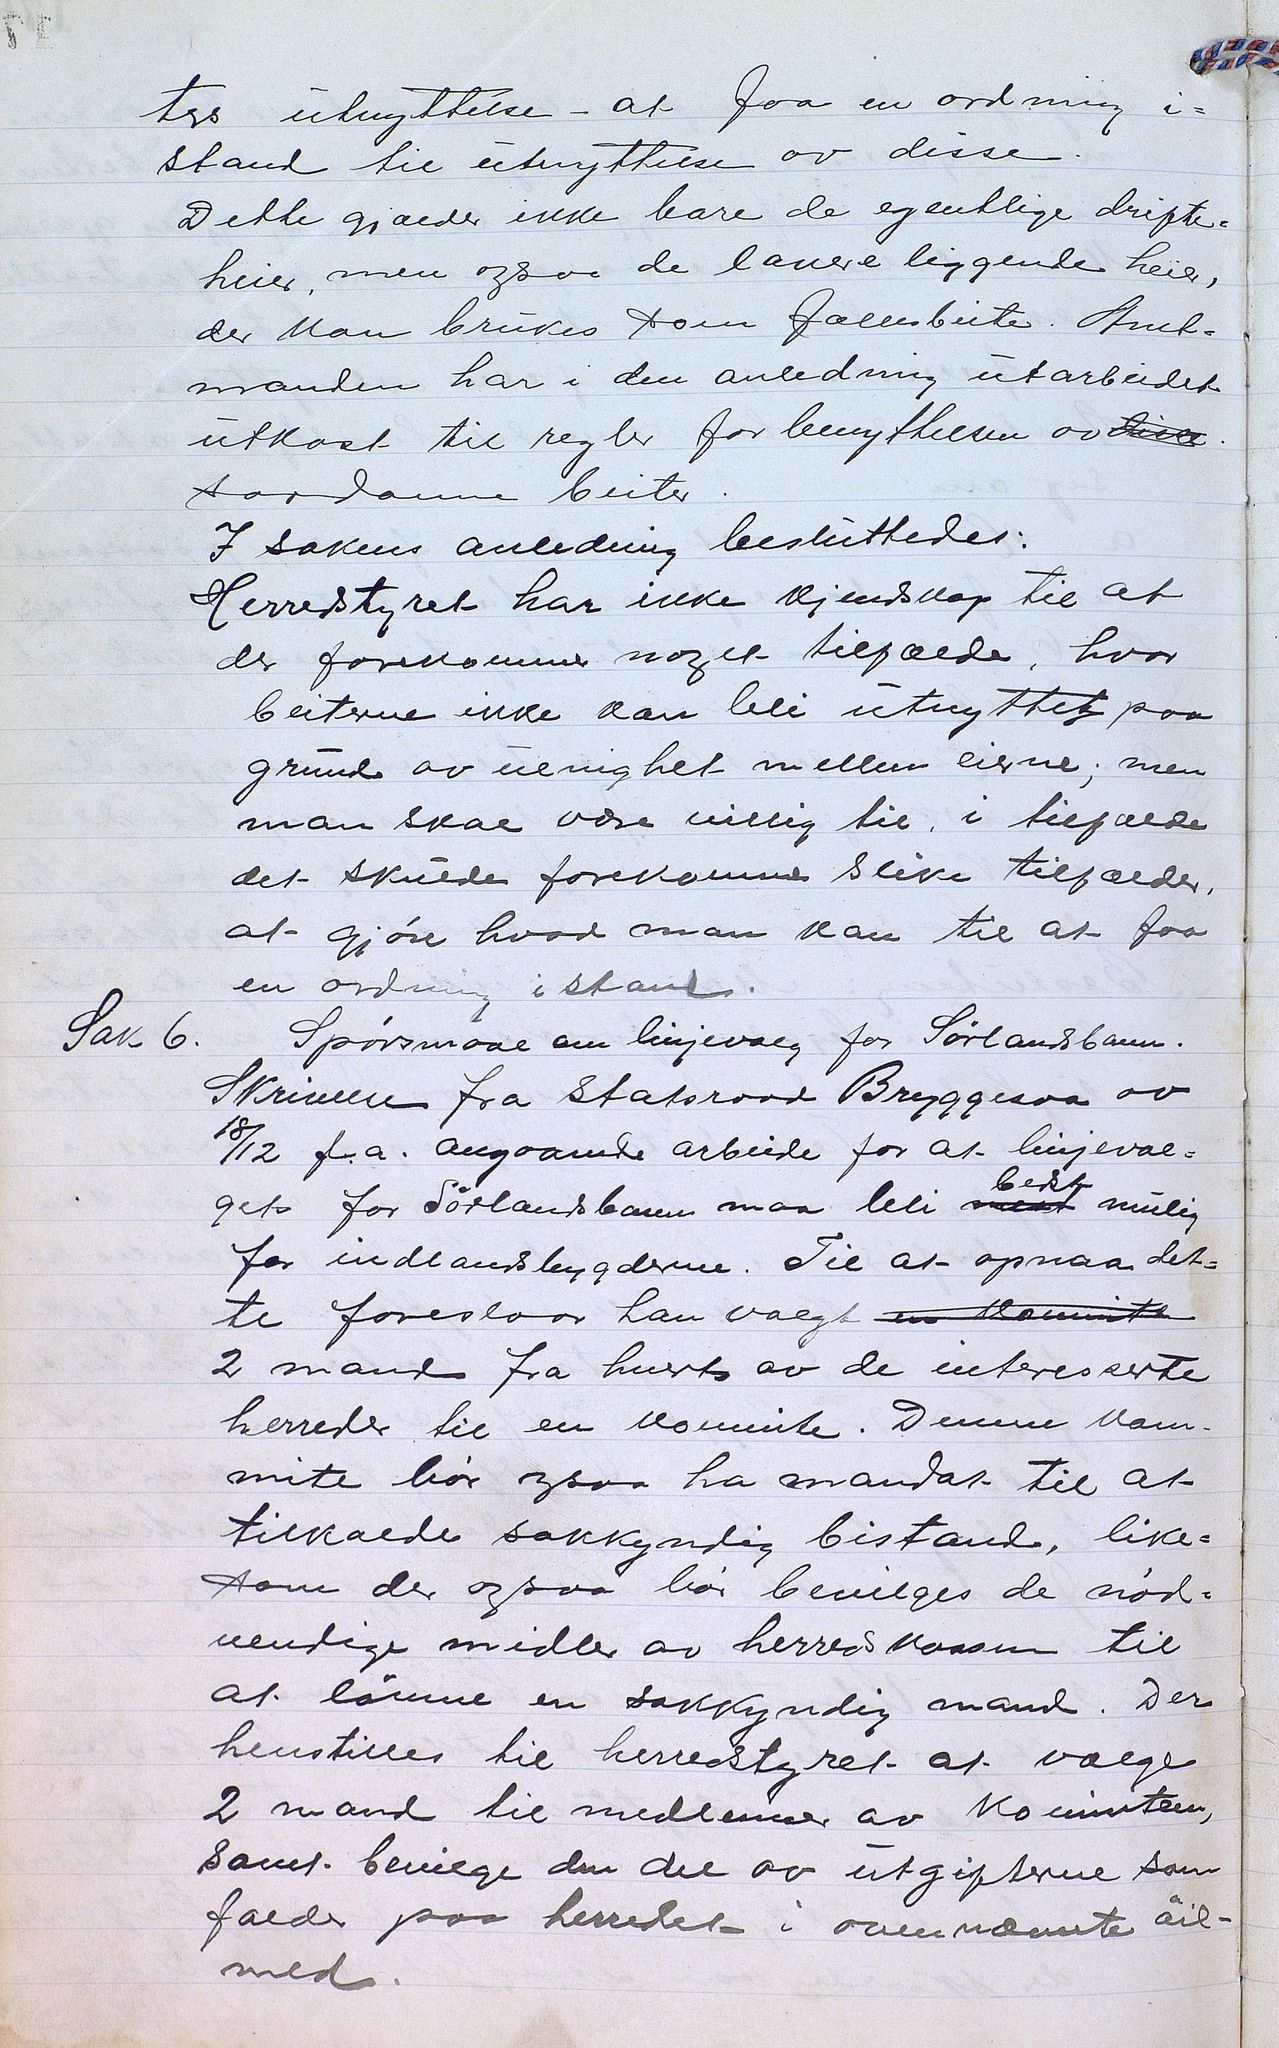 tes utnyttelse - at faa en ordning i=
stand til utnyttelse av disse.
Dette gjælder ikke bare de egentlige drifte=
heier, men ogsaa de lavere liggende heier,
der kan brukes som fællesbeite. Amt=
manden har i den anledning utarbeidet
utkast til regler for benyttelsen av disse.
saadanne beiter.
I sakens anledning besluttedes:
Herredstyret har ikke kjendskap til at
der forekommer noget tilfælde, hvor
beiterne ikke kan bli utnyttet paa
grund av uenighet mellem eierne; men
man skal være villig til, i tilfælde
det skulde forekomme slike tilfælder,
at gjöre hvad man kan til at faa
en ordning istand.
Sak 6. Spörsmaal om linjevalg for Sörlandsbanen.
Skrivelse fra statsraad Bryggesaa av
18/12 f.a. angaaende arbeide for at linjeval=
get for Sörlandsbanen maa bli mest bedst mulig
for indlandsbygderne. Til at opnaa det=
te foreslaar han valgt en komite
2 mand fra hvert av de interesserte
herreder til en komite. Denne kom=
mite bör ogsaa ha mandat til at
tilkalde sakkyndig bistand, like=
som der ogsaa bör bevilges de nöd=
vendige midler av herredskassen til
at lönne en sakkyndig mand. Der
henstilles til herredstyret at vælge
2 mand til medlemmer av komiteen,
samt bevilge den del av utgifterne som
falder paa herredet i ovennævnte
med.